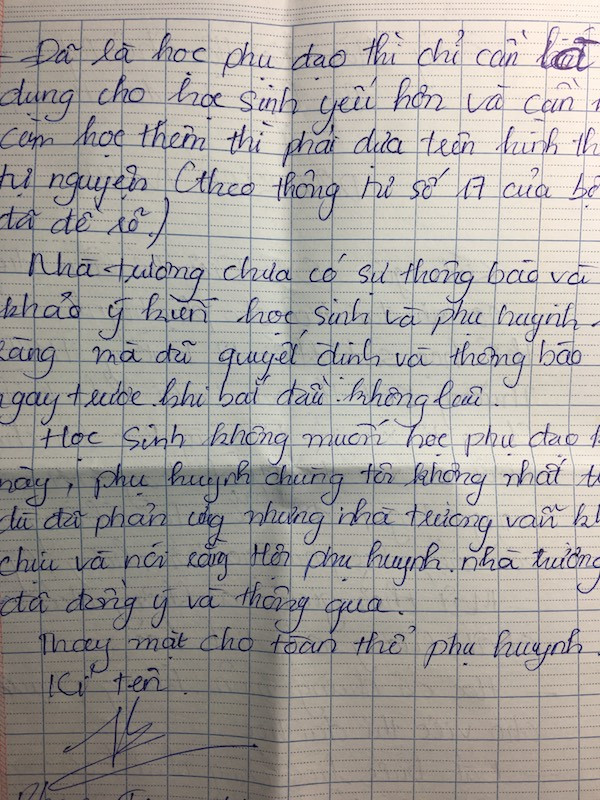 - Đã là học phụ đạo thì chỉ cần bắt
dụng cho học sinh yếu hơn và cần
cầm học thêm thì phải dựa trên hình th
tự nguyện (theo thông tư số 17 của bộ
đã đề rõ.)
Nhà trường chưa có sự thông báo và
khảo ý kiến học sinh và phụ huynh
ràng mà đã quyết định và thông báo
ngay trước khi bắt đầu không lâu.
Học sinh không muốn học phụ đạo k
này, phụ huynh chúng tôi không nhất t
dù đã phản ứng nhưng nhà trường vẫn kh
chịu và nói rằng Hội phụ huynh nhà trường
đã đồng ý và thông qua.
Thay mặt cho toàn thể phụ huynh.
Kí tên.